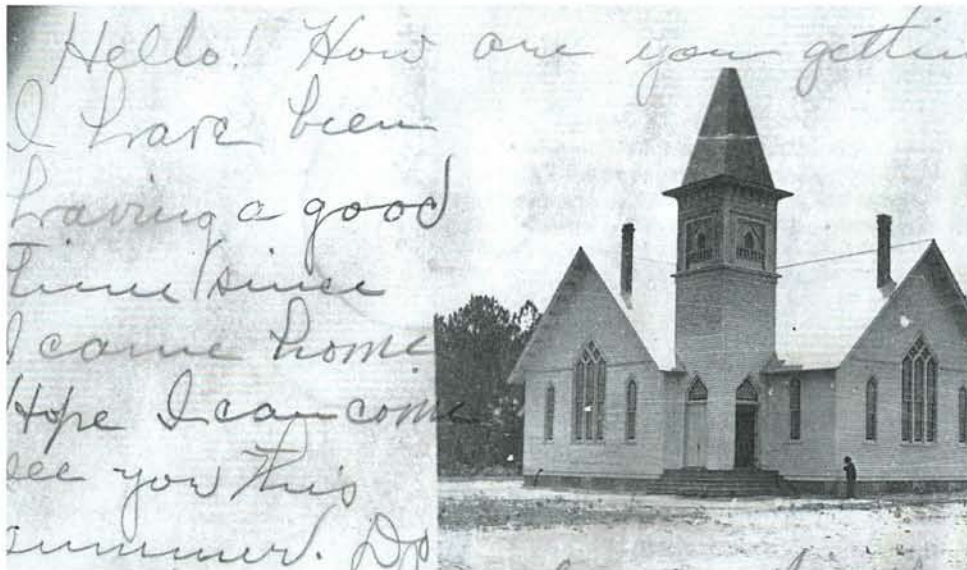 Hello! How are you gettin
I have been
having a good
time since
I came home
Hope I can come
see you this
summer. Do